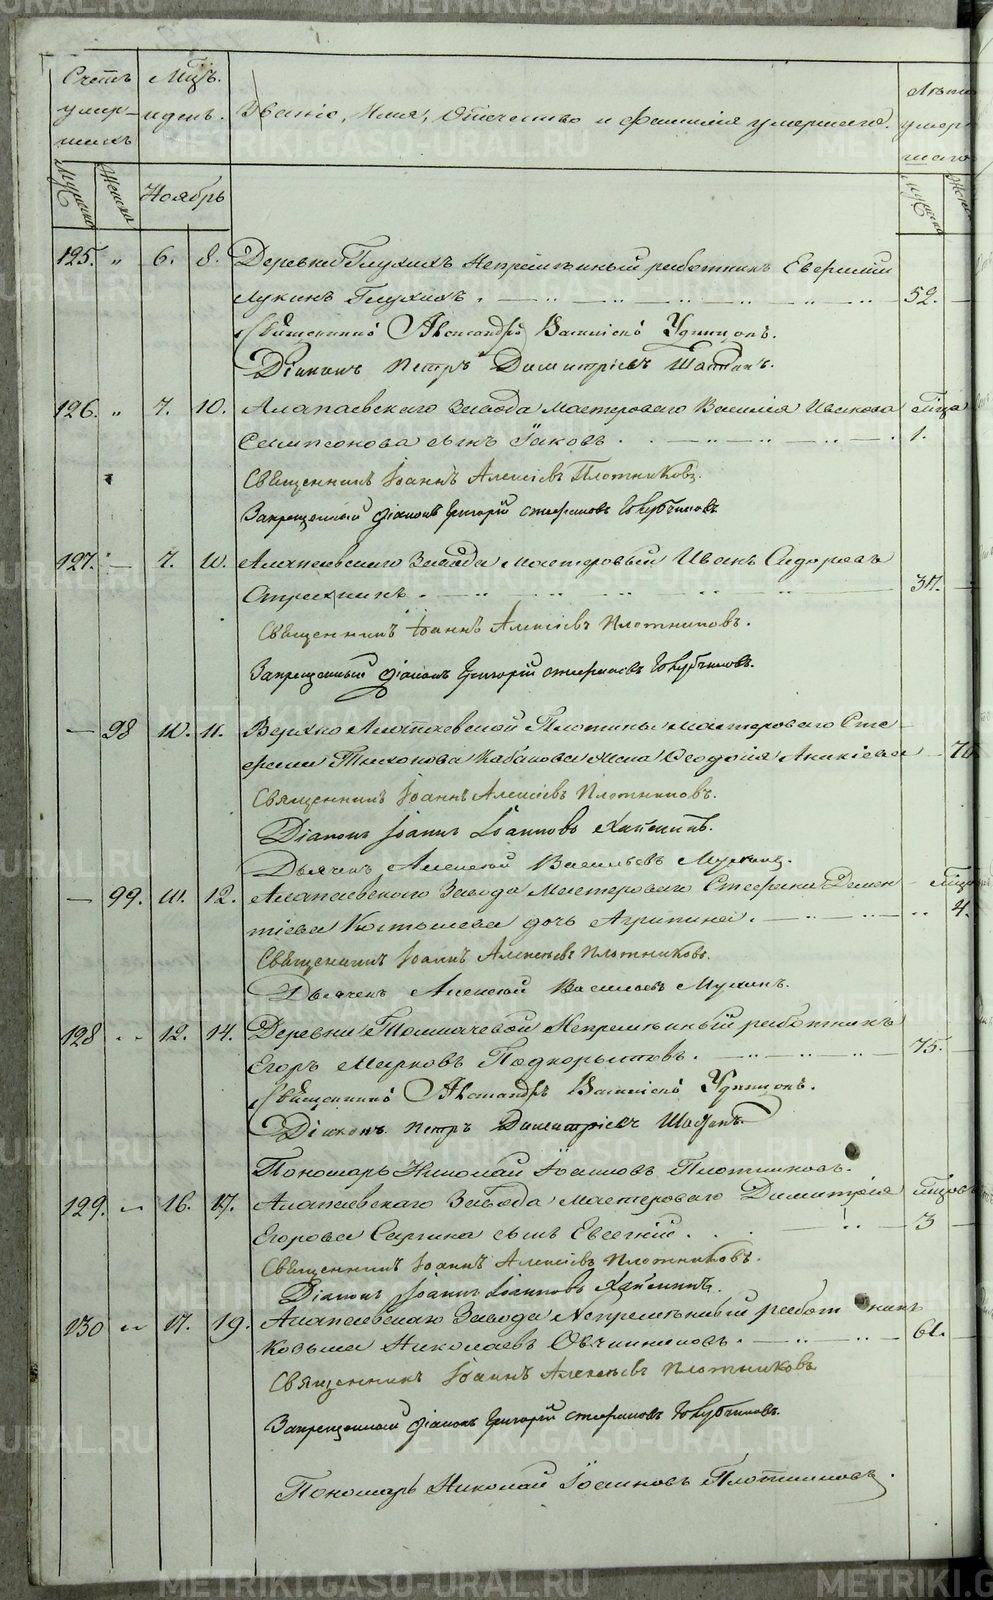 Счетъ умер-шихъ
Мцъ. и день.
Званіе, Имя, Отечество и фамилія умершаго.
Лѣта умер шаго
Мужеска
Женска
Ноябрь
Мужеска
125. „ 6. 8. Деревни Глухихъ Непремѣнный работникъ Евфимій
Лукинъ Глухихъ. 52.
Священникъ Александръ Васильевъ Удинцовъ.
Діаконъ Петръ Димитріевъ
126. „ 7. 10. Алапаевскаго Завода мастероваго Василія Иванова мца
Семионова сынъ Іаковъ. 1.
Священникъ Іоаннъ Алексіевъ Плотниковъ.
Запрещенный діаконъ Григорій Стефановъ
127. — 7. 10. Алапаевскаго Завода мастеровый Иванъ Сидоровъ
37.
Священникъ Іоаннъ Алексіевъ Плотниковъ.
Запрещенный діаконъ Григорій Стефановъ
— 98 10. 11. Верхно Алапаевской Плотины мастероваго Сте-
фана Тихонова Кабакова жена Ѳеодосія Аникіева
Священникъ Іоаннъ Алексіевъ Плотниковъ.
Діаконъ Іоаннъ Іоанновъ
Дьячекъ Алексѣй Васильевъ
— 99. 10. 12. Алапаевскаго Завода Мастероваго Стефана Демен-
тіева Костылева дочь Агрипина. 4.
Священникъ Іоаннъ Алексіевъ Плотниковъ.
Дьячекъ Алексѣй Васильевъ
128 „ 12. 14. Деревни Толмачевой Непремѣнный работникъ
Егоръ Марковъ Подкорытовъ. 75.
Священникъ Александръ Васильевъ Удинцовъ.
Діаконъ Петръ Димитріевъ
Пономарь Николай Іоанновъ Плотниковъ.
129. „ 16. 17. Алапаевскаго Завода мастероваго Димитрія мцовъ
Егорова Саргина сынъ Евсегній. 3
Священникъ Іоаннъ Алексіевъ Плотниковъ.
Діаконъ Іоаннъ Іоанновъ
130 „ 17. 19. Алапаевскаго Завода Непремѣнный работникъ
Козьма Николаевъ Овчинниковъ. 61.
Священникъ Іоаннъ Алексіевъ Плотниковъ
Запрещенный діаконъ Григорій Стефановъ
Пономарь Николай Іоанновъ Плотниковъ.
METRIKI.GASO-URAL.RU